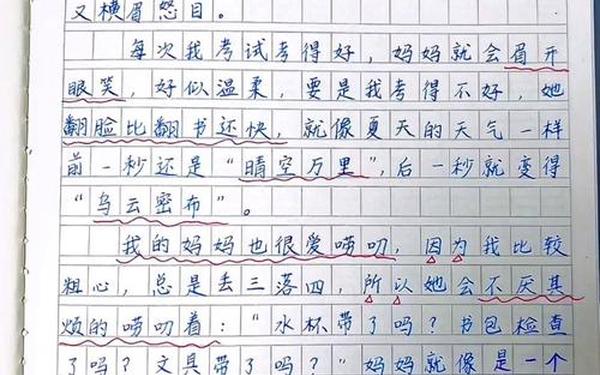 又横眉怒目。
每次我考试考得好，妈妈就会眉开
眼笑，好似温柔，要是我考得不好，她
翻脸比翻书还快，就像夏天的天气一样
前一秒还是“晴空万里”，后一秒就变得
“乌云密布”。
我的妈妈也很爱唠叨，因为我比较
粗心，总是丢三落四，所以她会不厌其
烦的唠叨着：“水杯带了吗？书包检查
了吗？文具带了吗？”妈妈就像是一个